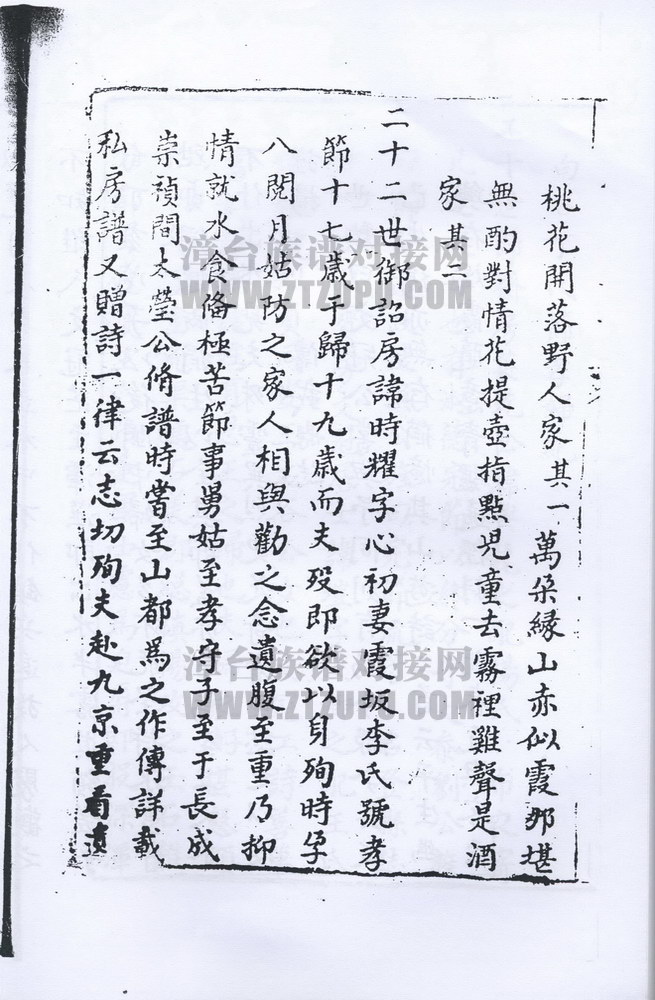 桃花開落野人家其一萬朵緣山赤似霞那堪
無酌對情花提壺指點児童去霧裡雞聲是酒
家其二
二十二世御詔房諱時耀字心初妻霞坂李氏號孝
節十七歲于歸十九歲而夫歿即欲以身殉時孕
八閱月姑防之家人相與勸之念遺腹至重乃抑
情就水食俻極苦節事舅姑至孝守子至于長成
崇禎間太瑩公脩譜時嘗至山都爲之作傳詳載
私房譜又贈詩一律云志切殉夫赴九京重看遺
漳台族谱对接网
WWW.ZTZUPU.COM
漳台族谱对接网
WWW.ZTZUPU.COM